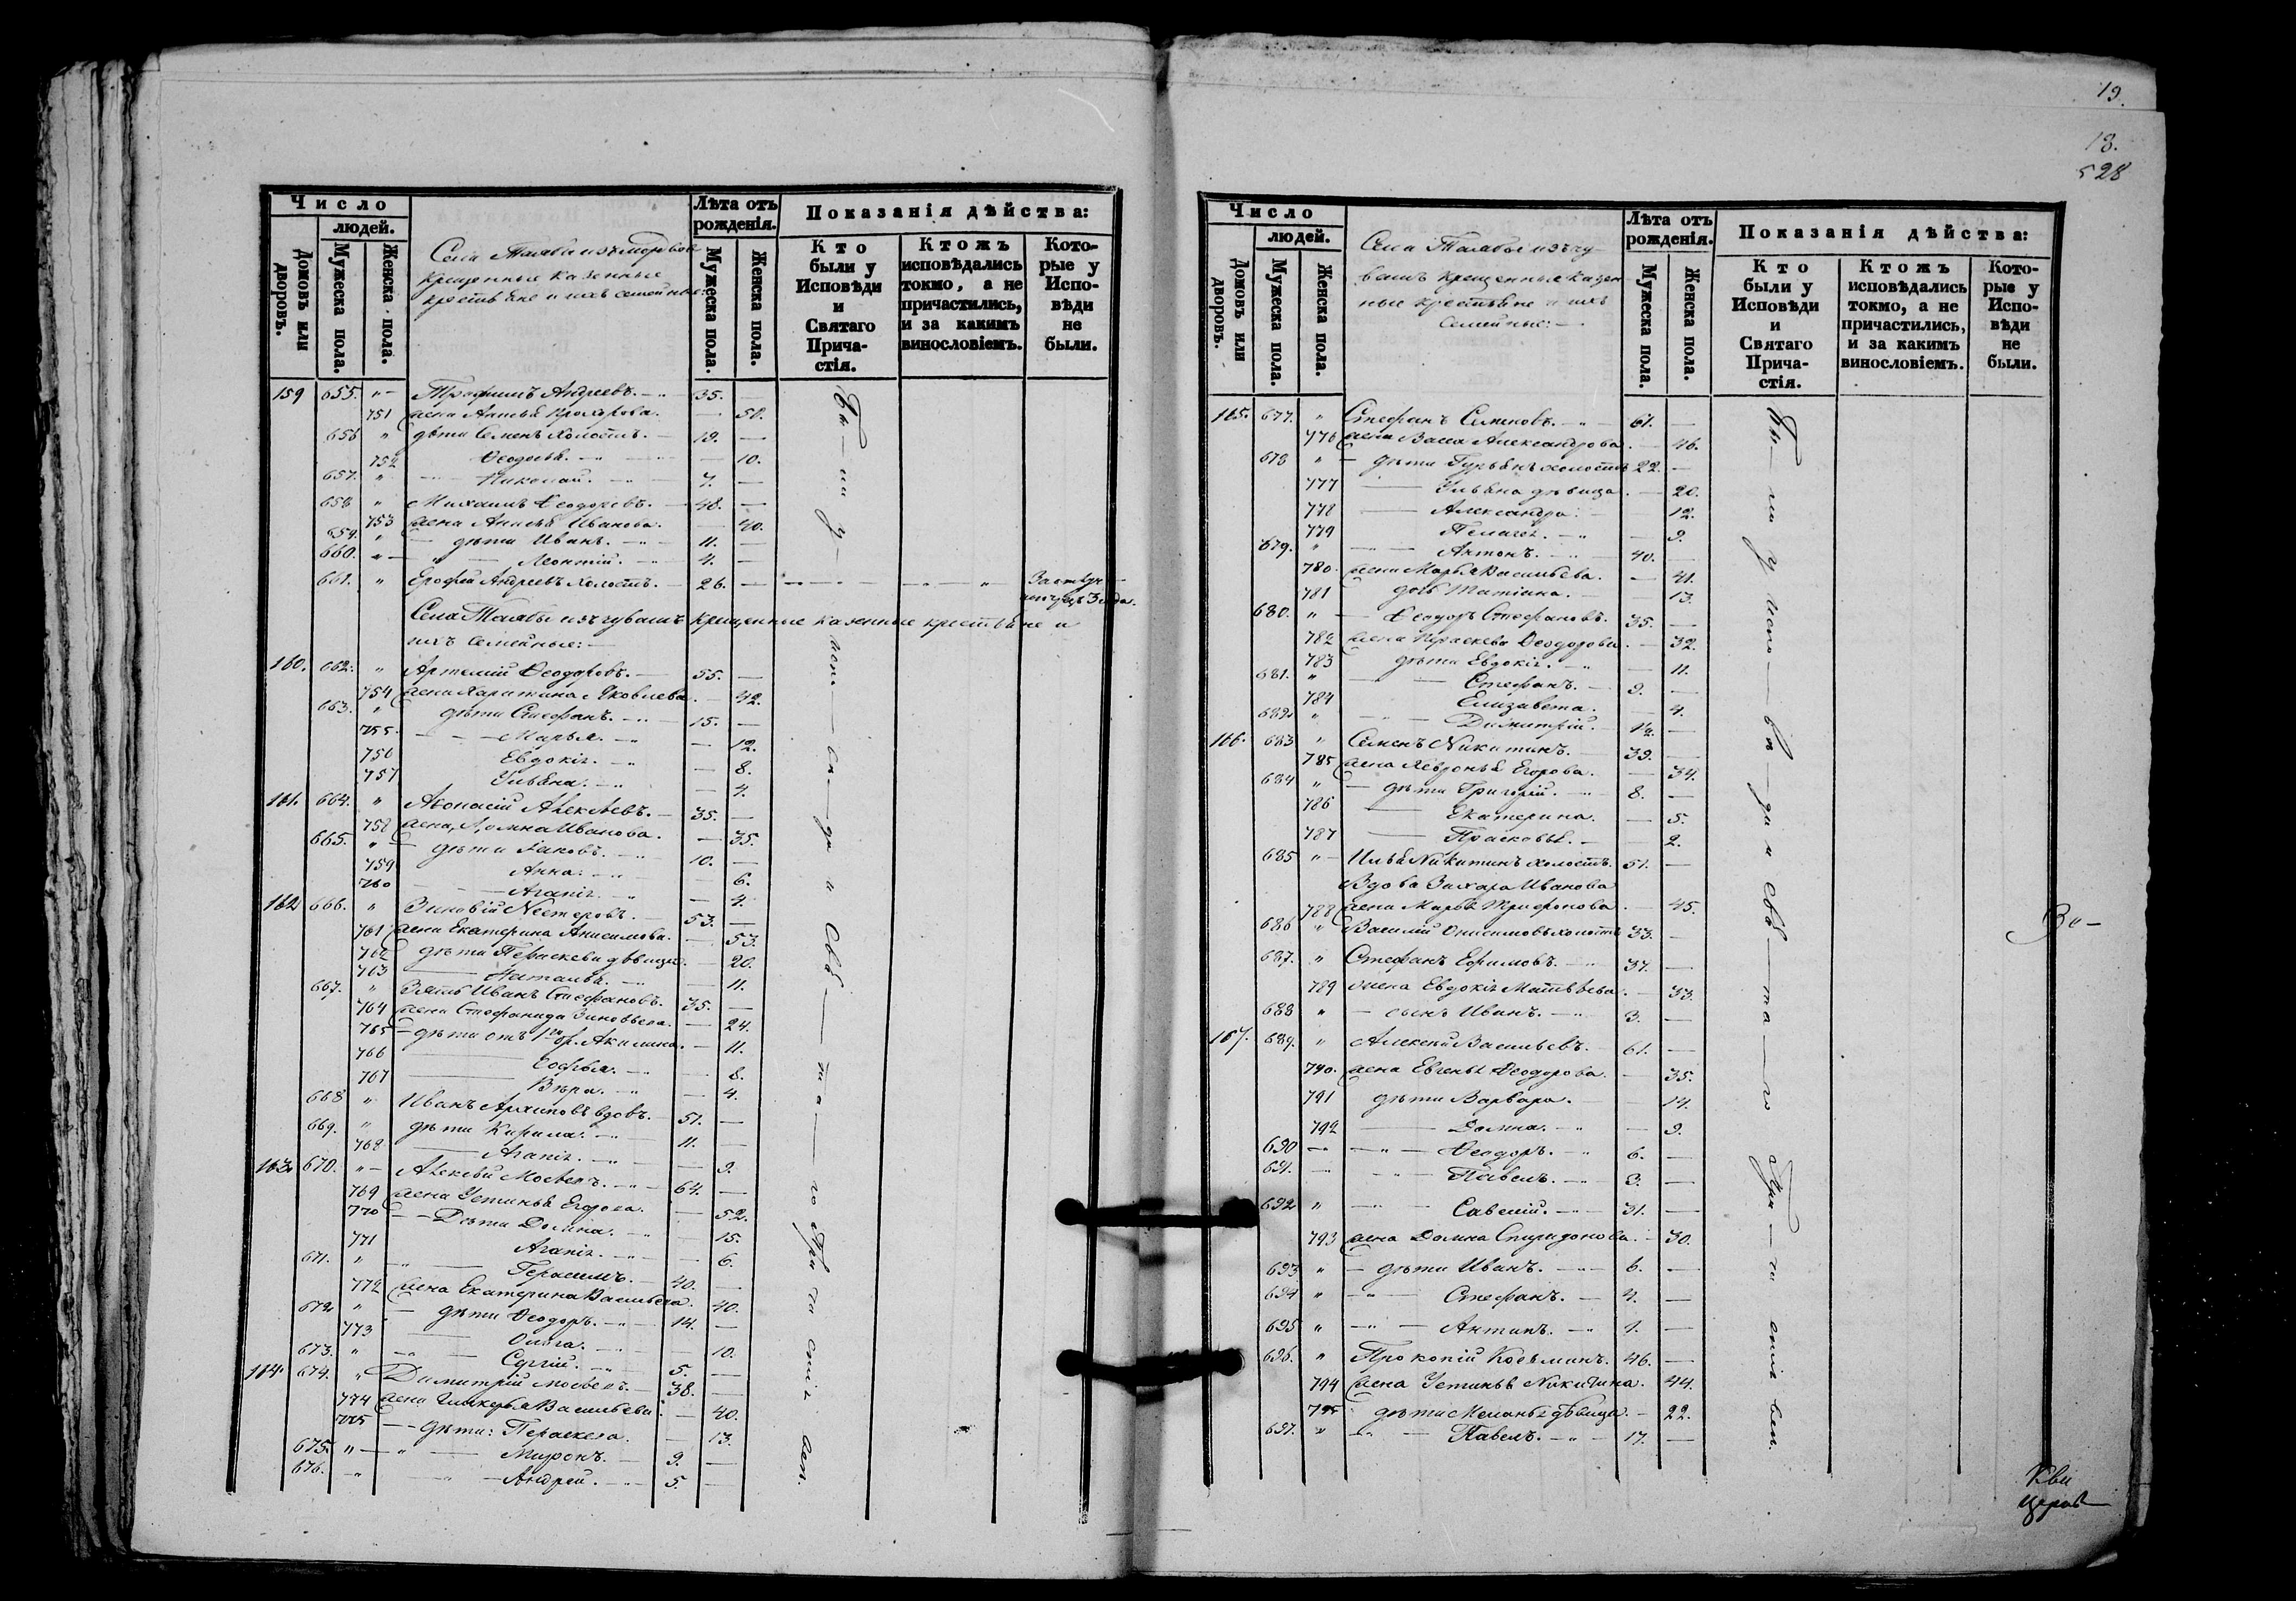 Число
людей.
Домовъ или дворовъ.
Мужеска пола.
Женска пола.
Села Талабы изъ мордвовъ
крещенные казенные
крестьяне и ихъ семейные:
Лѣта отъ рожденія.
Мужеска пола.
Женска пола.
Показанія дѣйства:
Кто были у Исповѣди и Святаго Причастія.
Ктожъ исповѣдались токмо, а не причастились, и за какимъ винословіемъ.
Которые у Исповѣди не были.
159 655. " Трофимъ Андреевъ. 35. —
751 жена Анисья Прохорова. — 50.
656 " дѣти Семенъ холостъ. 19. —
752 Ѳедосья. — 10.
657. " Николай. 7. —
658 " Михаилъ Ѳеодоровъ. 48. —
753 жена Анисья Иванова. — 40.
659. " дѣти Иванъ. 11. —
660. " Леонтій. 4. —
661. " Ерофей Андреевъ холостъ. 26. —
Села Талабы изъ чувашъ крещенные казенные крестьяне и
ихъ семейные:—
160. 662. " Артемій Ѳеодоровъ. 55. —
754 жена Харитина Яковлева. — 42.
663. " дѣти Стефанъ. 15. —
755. Марья. — 12.
756 Евдокія. — 8.
757 Ульяна. — 4.
161. 664. " Аѳонасій Алексѣевъ. 35. —
758 жена Домна Иванова. — 35.
665. " дѣти Іаковъ. 10. —
759 Анна. — 6.
760 Агапія. — 4.
162 666. " Зиновій Нестеровъ. 53. —
761 жена Екатерина Анисимова. — 53.
762 дѣти Параскева дѣвица. — 20.
763 Наталья. — 11.
667. " Зять Иванъ Стефановъ. 35. —
764 жена Стефанида Зиновьева. — 24.
765 дѣти отъ 1го бр. Акилина. — 11.
766 Софья. — 8.
767 Вѣра. — 4.
668 " Иванъ Архиповъ вдовъ. 51. —
669. " дѣти Кирила. 11. —
768 Агапія. — 9.
163 670. " Алексѣй Мосѣевъ. 64. —
769 жена Устинья Егорова. — 52.
770 Дѣти Домна. — 15.
771 Агапія. — 6.
671. " Герасимъ. 40. —
772 жена Екатерина Васильева. — 40.
672 " дѣти Ѳеодоръ. 14. —
773 Ольга. — 10.
673. " Сергій. 5. —
164 674. " Димитрій Мосѣевъ. 38. —
774 жена Гликерья Васильева. — 40.
775 дѣти: Параскева. — 13.
675. " Миронъ. 9. —
676. " Андрей. 5. —
19.
18.
528
Число
людей.
Домовъ или дворовъ.
Мужеска пола.
Женска пола.
Села Талабы изъ чу-
вашъ крещенные казен
ные крестьяне и ихъ
семейные:—
Лѣта отъ рожденія.
Мужеска пола.
Женска пола.
Показанія дѣйства:
Кто были у Исповѣди и Святаго Причастія.
Ктожъ исповѣдались токмо, а не причастились, и за какимъ винословіемъ.
Которые у Исповѣди не были.
165. 677. " Стефанъ Симоновъ. 61. —
776 жена Васса Александрова. — 46.
678 " дѣти Гурьянъ холостъ 22. —
777 Ульяна дѣвица. — 20.
778 Александра. — 12.
779 Пелагея. — 9.
679. " Антонъ. 40. —
780. жена Марья Васильева. — 41.
781 дочь Татіана. — 13.
680. " Ѳеодоръ Стефановъ. 35. —
782 жена Параскева Ѳеодорова. — 32.
783 дѣти Евдокія. — 11.
681. " Стефанъ. 9. —
784 Елизавета. — 4.
682. " Димитрій. 1/2. —
166. 683 " Семенъ Никитинъ. 39. —
785 жена Хевронья Егорова. — 34.
684 " дѣти Григорій. 8. —
786 Екатерина. — 5.
787 Прасковья. — 2.
685 " Илья Никитинъ холостъ. 51. —
Вдова Захара Иванова
788 жена Марья Трифонова. — 45.
686 " Василій Онисимовъ холостъ 33. —
687. " Стефанъ Ефимовъ. 37. —
789 жена Евдокія Матвѣева. — 33.
688 " сынъ Иванъ. 3. —
167. 689. " Алексѣй Васильевъ. 61. —
790. жена Евгенія Ѳеодорова. — 35.
791 дѣти Варвара. — 14.
792 Домна. — 9.
690 Ѳеодоръ. 6. —
691. Павелъ. 3. —
692 " Савелій. 31. —
793 жена Домна Спиридонова. — 30.
693 " дѣти Иванъ. 6. —
694 " Стефанъ. 4. —
695 " Антипъ. 1. —
696. " Прокопій Козьминъ. 46. —
794 жена Устинья Никитина. — 44.
795 дѣти Меланья дѣвица. — 22.
697. " Павелъ. 17. —